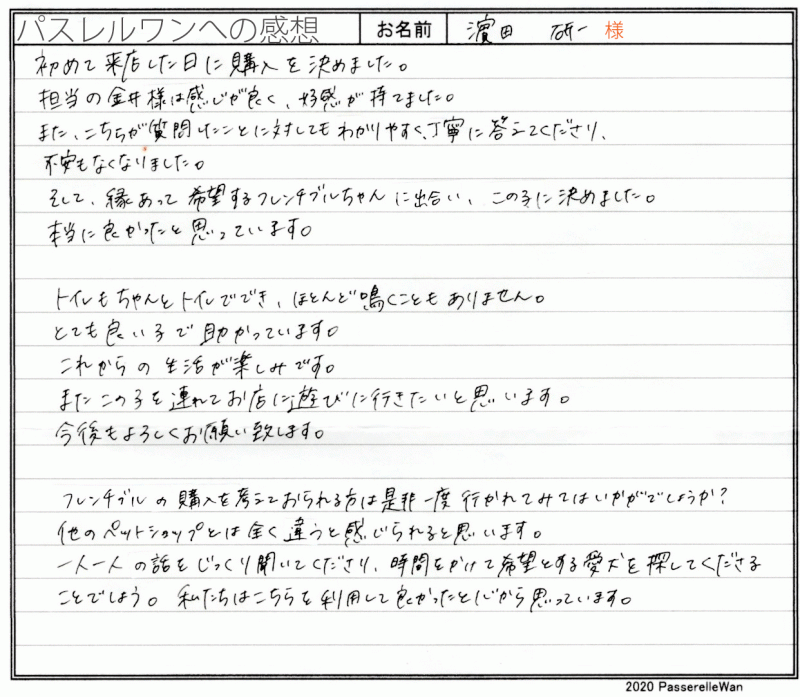 パスレルワンへの感想 お名前 濵田 研一 様
初めて来店した日に購入を決めました。
担当の金井様は感じが良く、好感が持てました。
また、こちらが質問したことに対してもわかりやすく、丁寧に答えてくださり、
不安もなくなりました。
そして、縁あって希望するフレンチブルちゃんに出合い、この子に決めました。
本当に良かったと思っています。
トイレもちゃんとトイレでき、ほとんど鳴くこともありません。
とても良い子で助かっています。
これからの生活が楽しみです。
またこの子を連れてお店に遊びに行きたいと思います。
今後もよろしくお願い致します。
フレンチブルの購入を考えておられる方は是非一度行かれてみてはいかがでしょうか?
他のペットショップとは全く違うと感じられると思います。
一人一人の話をじっくり聞いてくださり、時間をかけて希望とする愛犬を探してくださる
ことでしょう。私たちはこちらを利用して良かったと心から思っています。
2020 PasserelleWan